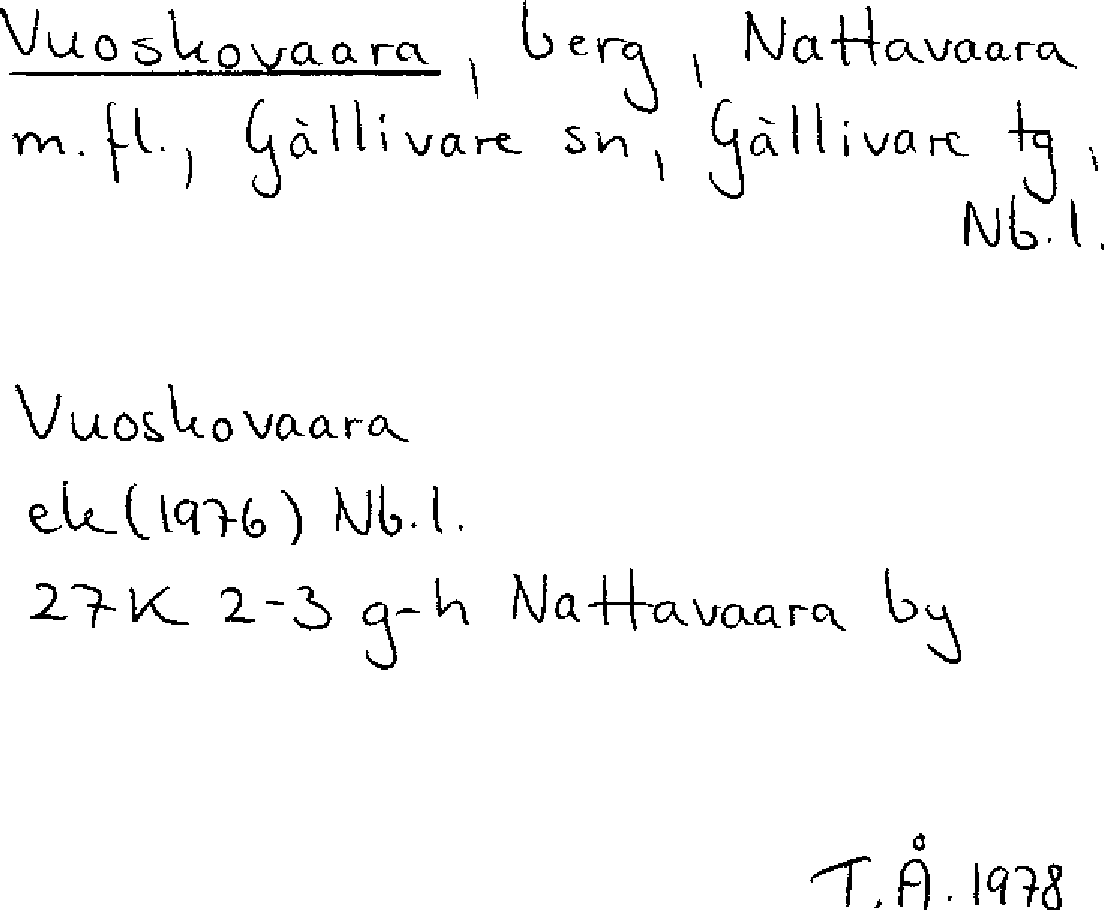 Vuoskovaara, berg, Nattavaara
m.fl., Gällivare sn, Gällivare tg,
Nb.l.
Vuoskovaara
ek(1976) Nb.l.
27K 2-3 g-h Nattavaara by
T.Å. 1978